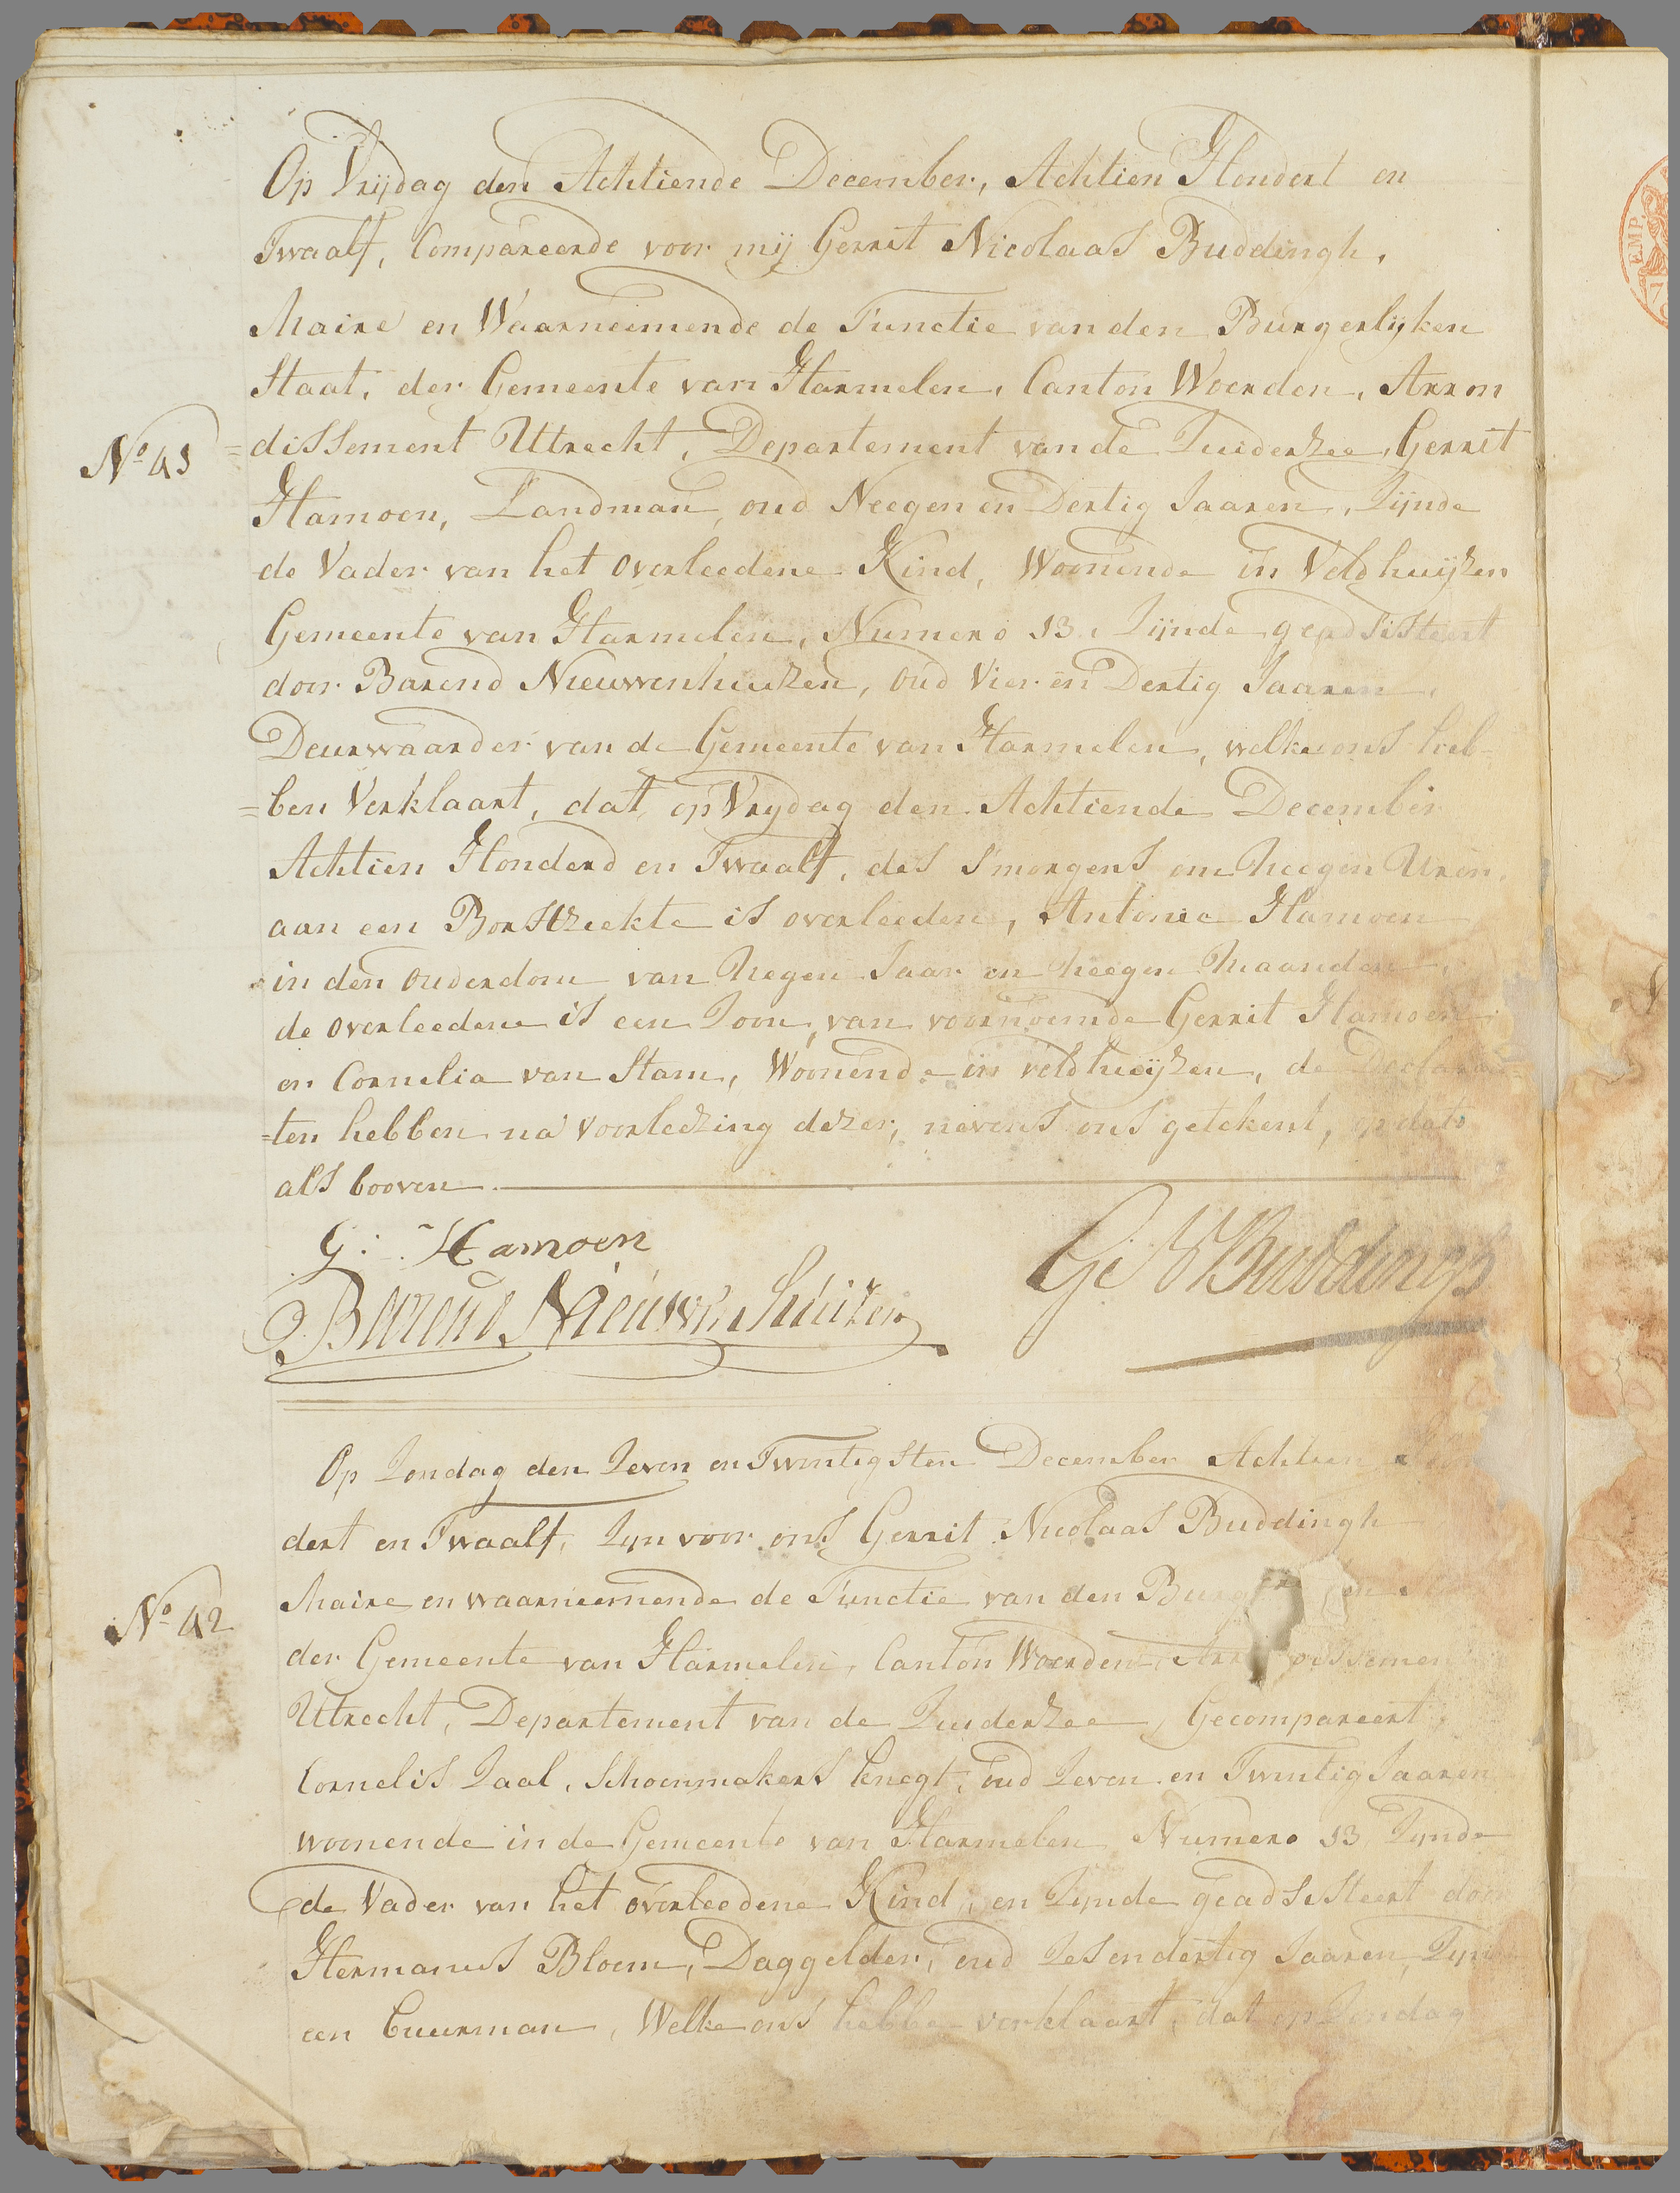 Op Vrijdag den Achtiende December, Achtien Hondert en
Twaalf, Compareerde voor mij Gerrit Nicolaas Buddingh,
Maire en Waarneemende de Functie van den Burgerlijken
Staat, der Gemeente van Harmelen, Canton Woerden, Arron
N° 41
=dissement Utrecht, Departement van de Zuiderzee, Gerrit
Hamoen, Landman, oud Neegen en Dertig Jaaren, Zijnde
de Vader van het overleedene Kind, Woonende in Veldhuijzen
Gemeente van Harmelen, Numero 13, Zijnde geadsisteert
door Barend Nieuwenhuizen, oud Vier en Dertig Jaaren,
Deurwaarder van de Gemeente van Harmelen, welke ons heb-
=ben Verklaart, dat op Vrydag den Achtiende December
Achtien Honderd en Twaalf, des smorgens om Neegen Uren,
aan een Borstziekte is overleeden, Antonie Hamoen
in den ouderdom van Negen Jaar en Neegen Maanden,
de overleedene is een Zoon van voornoemde Gerrit Hamoen
en Cornelia van Stam, Woonende in veldhuijzen, de Declaran
=ten hebben na voorleezing dezer, nevens ons getekent, op dato
als booven
G: Hamoen
G: N Buddingh
Barend Nieuwenhuizen
Op Zondag den Zeven en Twintigsten December Achtien Hon
dert en Twaalf, Zyn voor ons Gerrit Nicolaas Buddingh
Maire en waarneemende de Functie van den
N° 42
der Gemeente van Harmelen, Canton Woerden, Arrondissemen
Utrecht, Departement van de Zuiderzee, Gecompareert
Cornelis Zaal, Schoenmakers knegt, oud Zeven en Twintig Jaaren
woonende in de Gemeente van Harmelen Numero 13 Zynde
de Vader van het overleedene Kind, en Zynde geadsisteert door
Hermanus Bloem, Daggelder, oud Zes en dertig Jaaren, Zynde
een buurman, Welke ons hebbe verklaart, dat op Zondag
EMP.